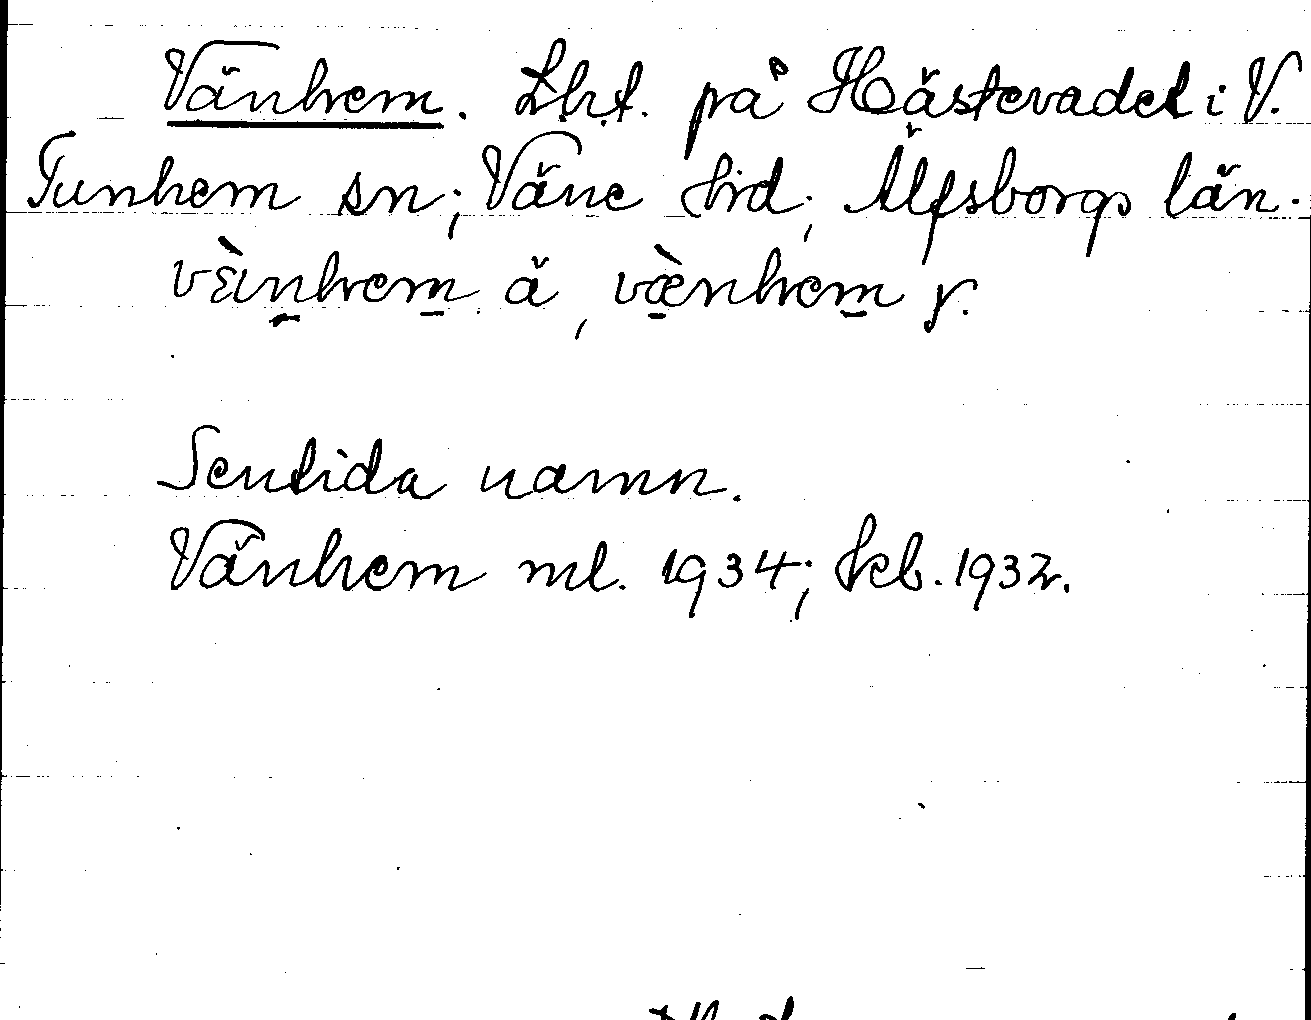 Vänhem. Lht. på Hästevadet i V.
Tunhem sn; Väne hd; Älfsborgs län.
vὲinhem ä, væ̀nhem y.
Sentida namn.
Vänhem ml. 1934; feb. 1932.